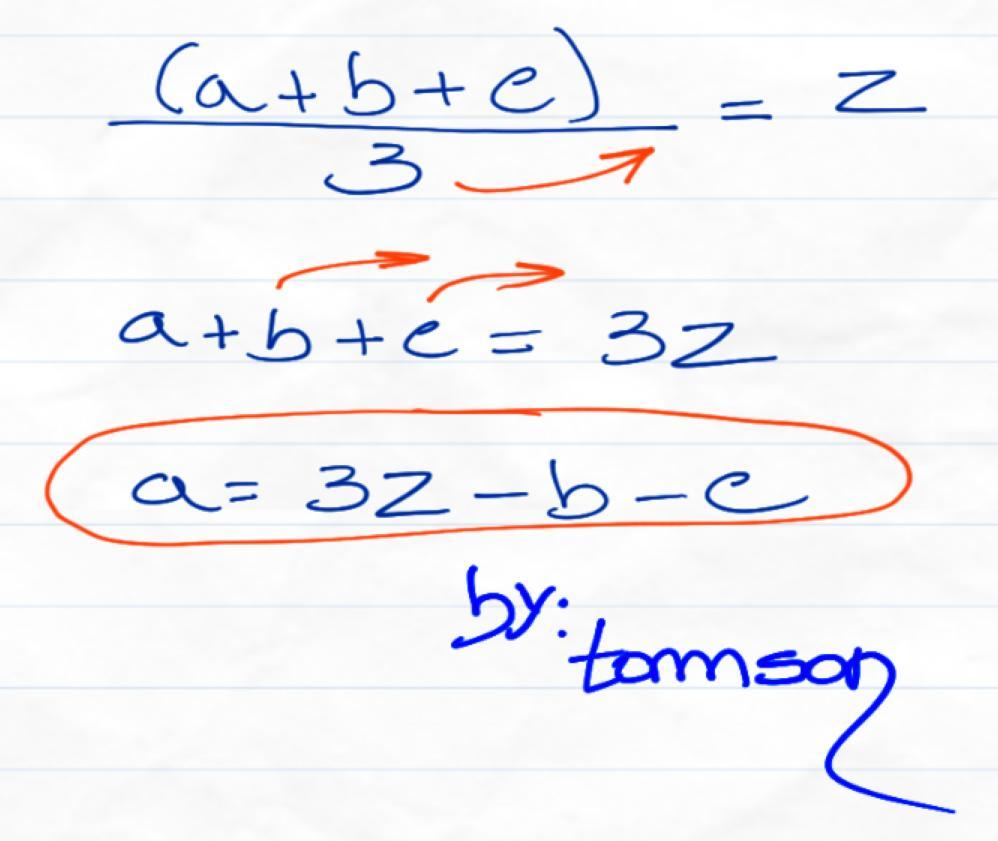 (a+b+c)
3 = z
a+b+c = 3z
a = 3z - b - c
by:
tomson